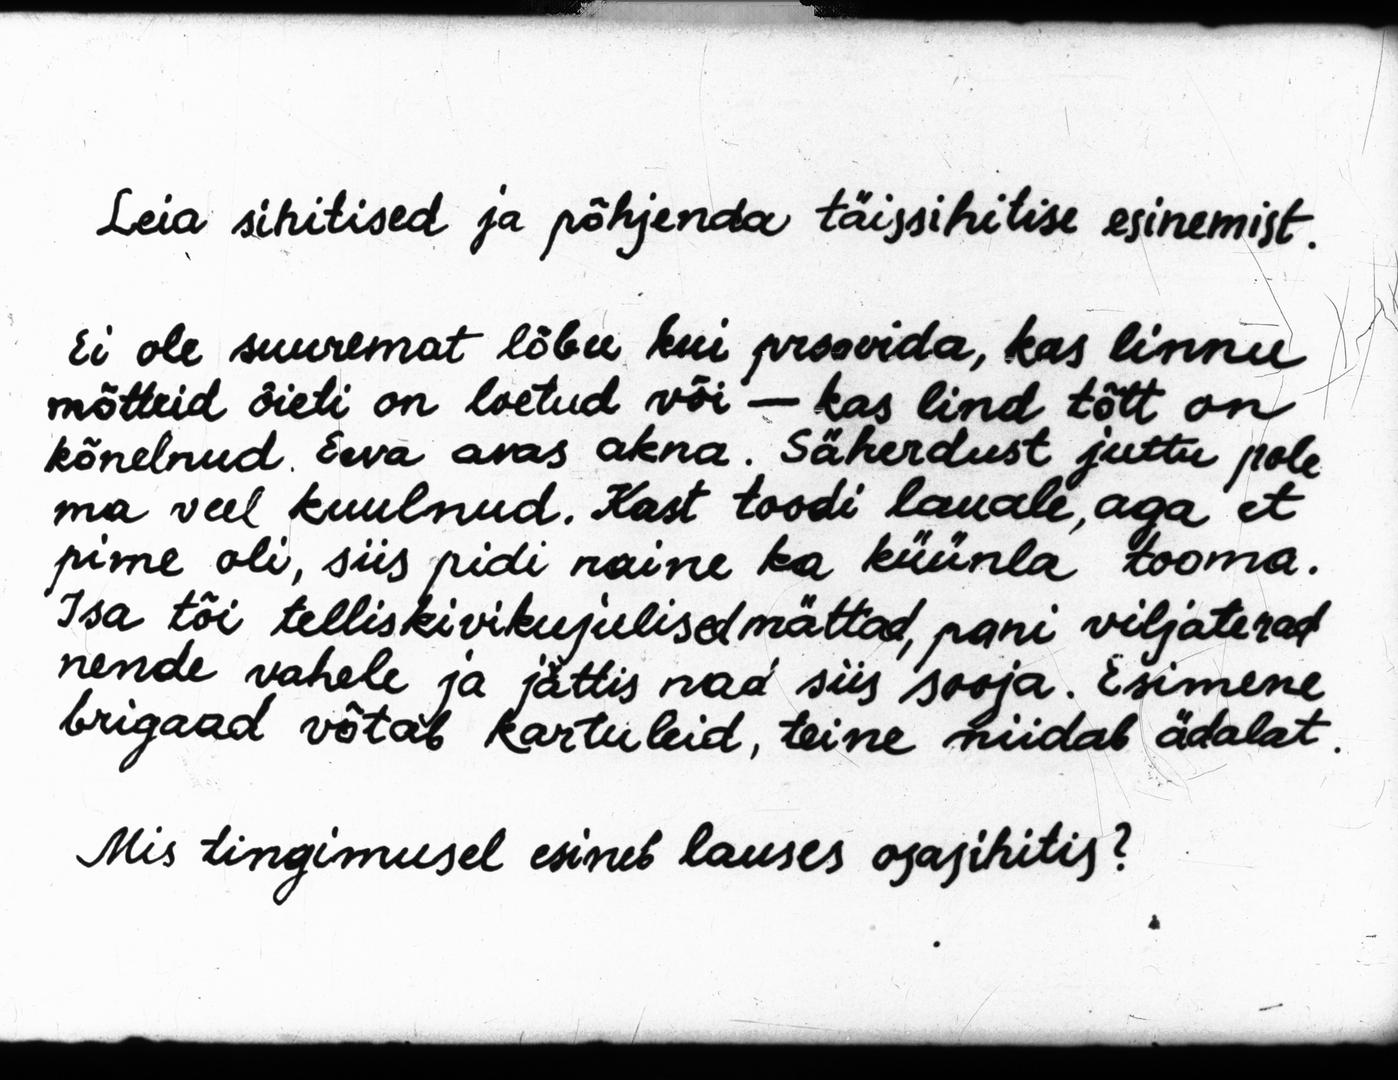 Leia sihitised ja põhjenda täissihitise esinemist.
Ei ole suuremat lõbu kui proovida, kas linnu
mõtteid õieti on loetud või – kas lind tõtt on
kõnelnud. Eeva avas akna. Säherdust juttu pole
ma veel kuulnud. Kast toodi lauale, aga et
pime oli, siis pidi naine ka küünla tooma.
Isa tõi telliskivikujulised mättad, pani viljaterad
nende vahele ja jättis nad siis sooja. Esimene
brigaad võtab kartuleid, teine niidab ädalat.
Mis tingimusel esineb lauses osasihitis?